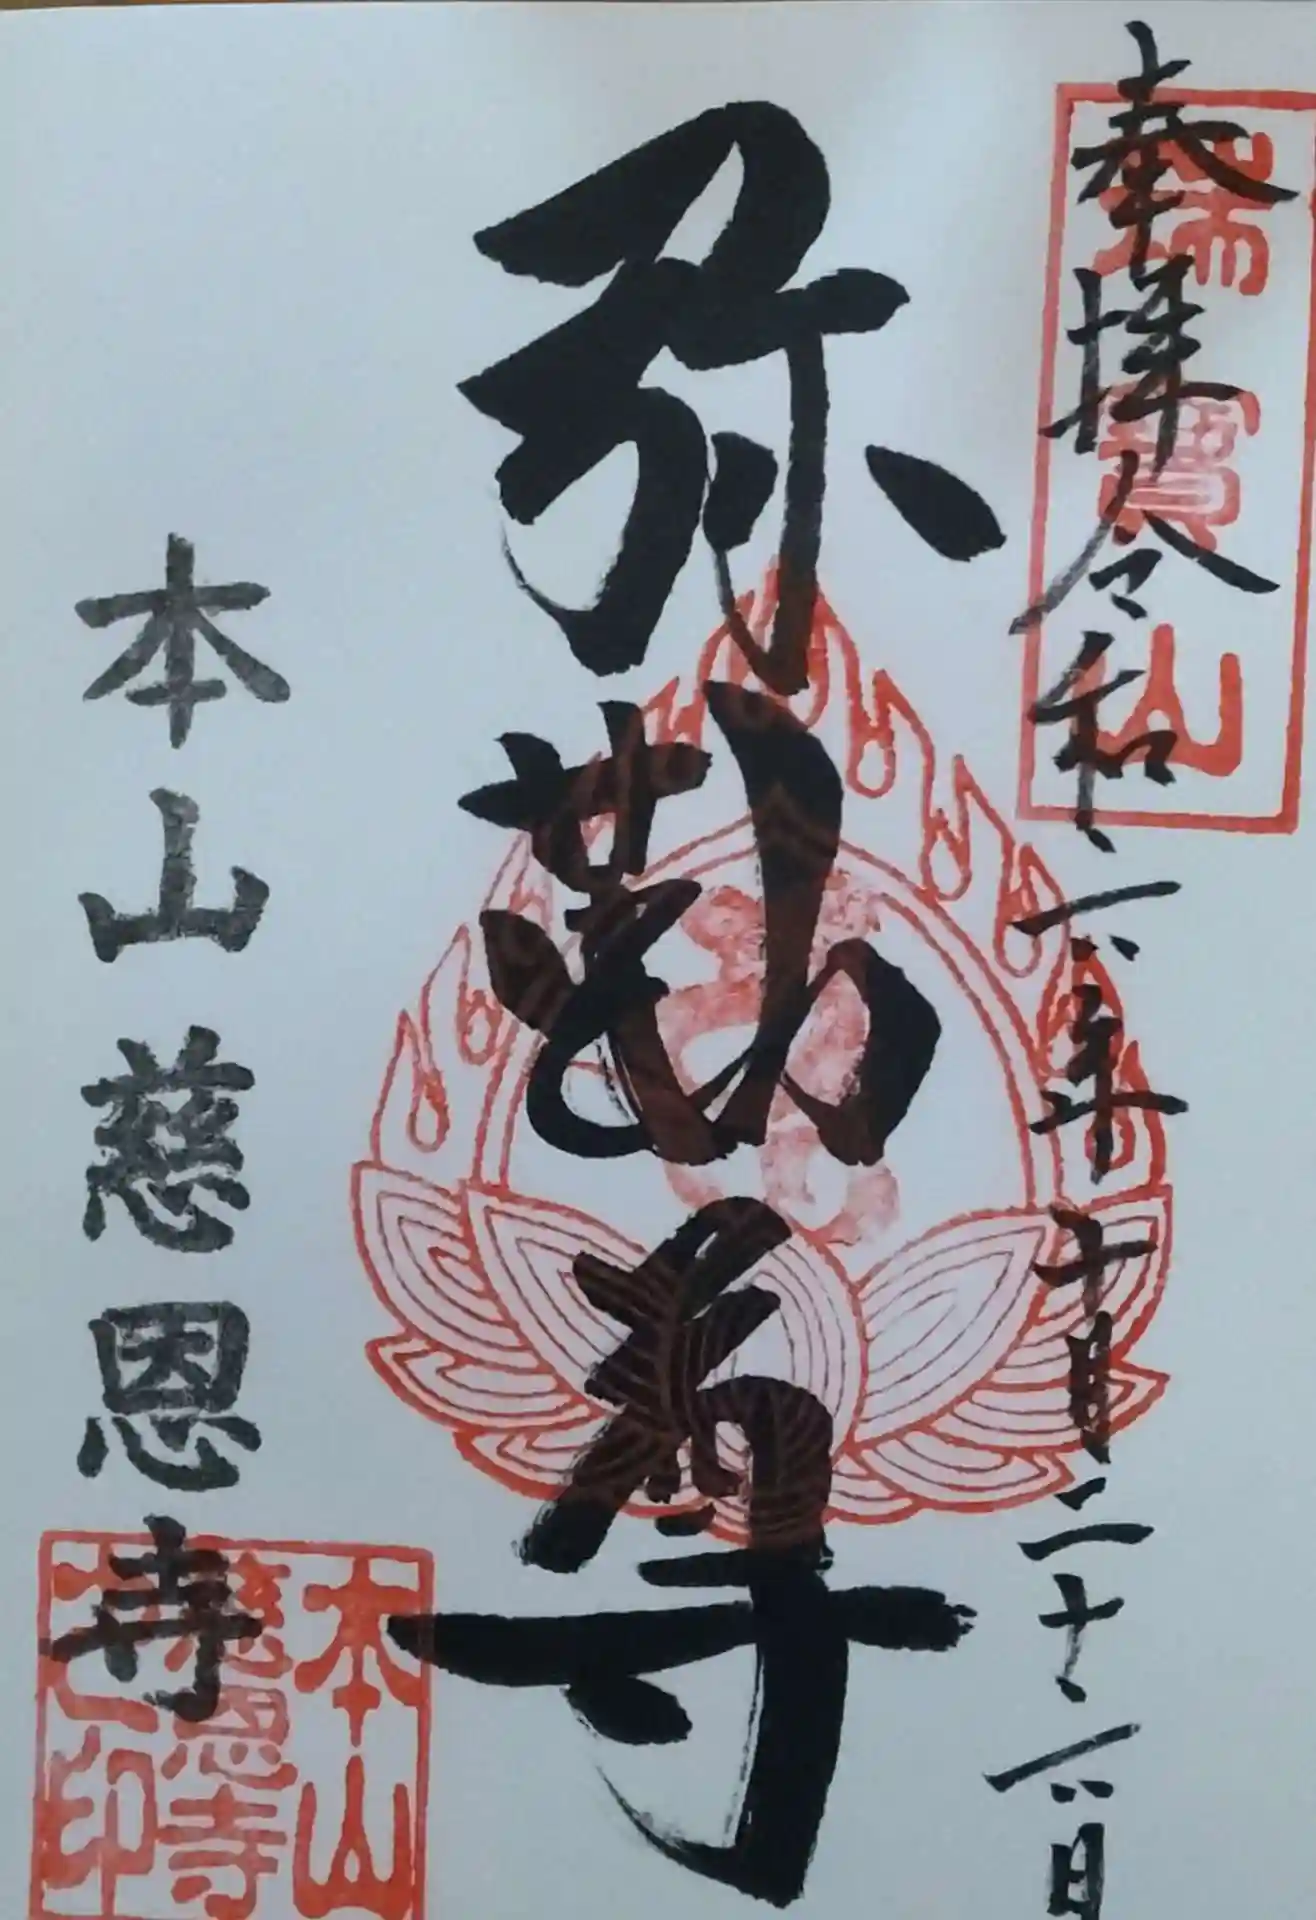 奉拝 令和六年十月二十六日
瑞寳山
弥勒尊
本山慈恩寺
本山
慈恩寺
印